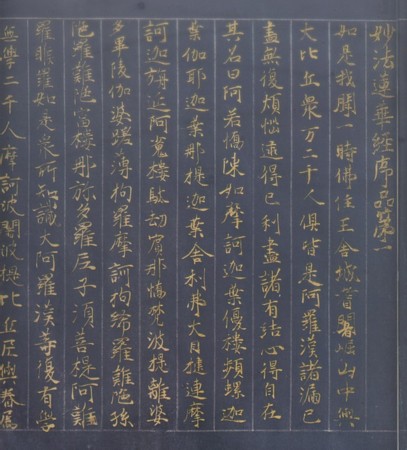 妙法蓮華經序品第一
如是我聞一時佛住王舍城耆闍崛山中與
大比丘衆万二千人俱皆是阿羅漢諸漏已
盡無復煩惱逮得己利盡諸有結心得自在
其名曰阿若憍陳如摩訶迦葉優樓頻螺迦
葉伽耶迦葉那提迦葉舍利弗大目揵連摩
訶迦旃延阿㝹樓馱劫賓那憍梵波提離婆
多畢陵伽婆蹉薄拘羅摩訶拘絺羅難陁孫
陁羅難陁富樓那弥多羅尼子須菩提阿難
羅睺羅如是衆所知識大阿羅漢等復有學
無學二千人摩訶波闍波提比丘尼與眷屬